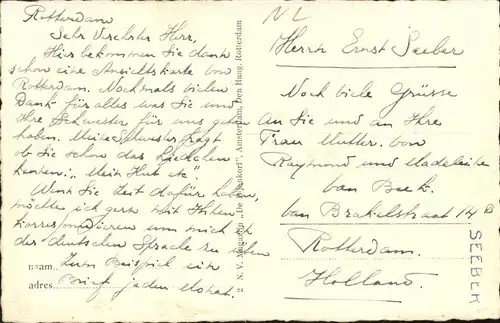 Rotterdam
Sehr Verehrter Herr,
Hier bekommen Sie dank
schon eine Ansichtskarte von
Rotterdam. Nochmals vielen
Dank für alles was Sie und
Ihre Schwester für uns getan
haben. Meine Schwester fragt
ob Sie schon das Liedchen
kennen: "Mein Hut etc".
Wenn Sie Zeit dafür haben,
möchte ich gern mit Ihnen
korrespondieren um mich in
der deutschen Sprache zu üben
naam Zum Beispiel ein
adres Brief jeden Monat.
N.V. Magazijn „De Bijenkorf”, Amsterdam, Den Haag, Rotterdam
NL
Herrn Ernst Seeber
Noch viele Grüsse
an Sie und an Ihre
Frau Mutter. von
Raymond und Madeleine
van Beek.
van Brakelstraat 14 B
Rotterdam.
Holland.
SEEBER